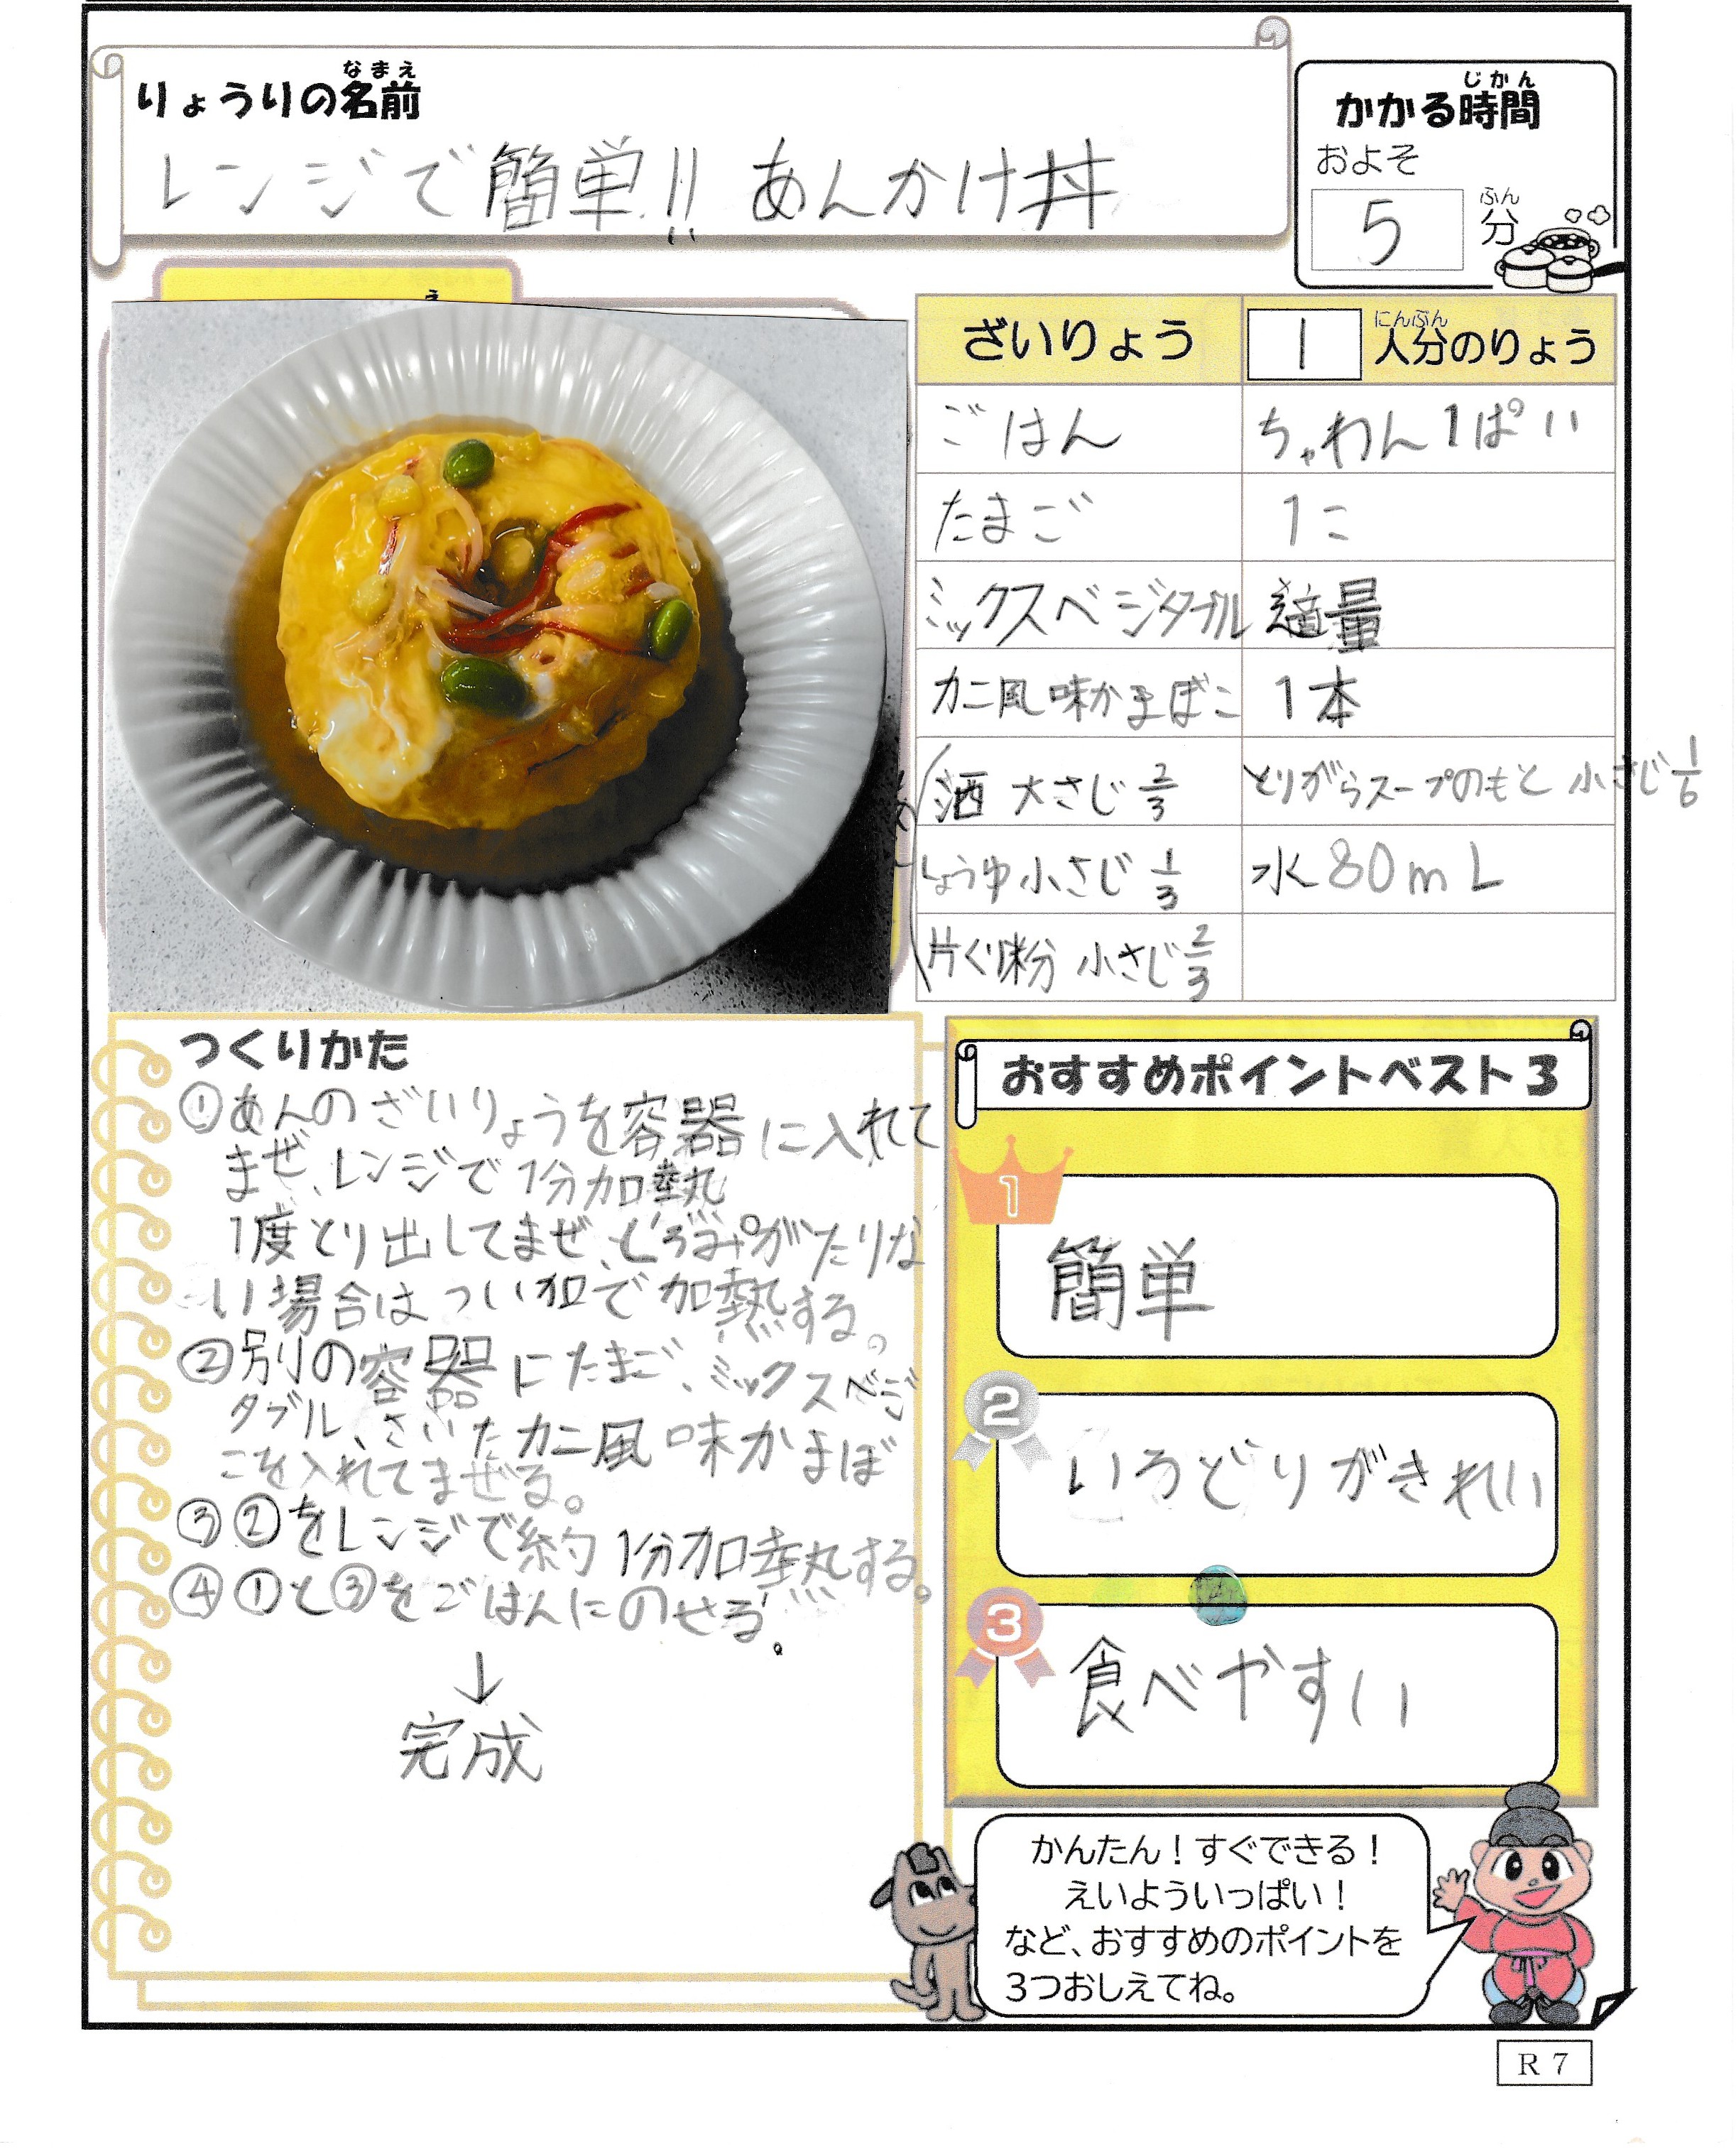 りょうりの名前
なまえ
レンジで簡単!! あんかけ丼
かかる時間
じかん
およそ
5 分
ふん
え
ざいりょう 1 人分のりょう
にんぶん
ごはん ちゃわん1ぱい
たまご 1こ
ミックスベジタブル 適量
カニ風味かまぼこ 1本
酒 大さじ2/3 とりがらスープのもと 小さじ1/6
しょうゆ 小さじ1/3 水80mL
片くり粉 小さじ2/3
つくりかた
①あんのざいりょうを容器に入れて
まぜ、レンジで1分加熱
1度とり出してまぜ、とろみがたりな
い場合はついかで加熱する。
②別の容器にたまご、ミックスベジ
タブル、さいたカニ風味かまぼ
こを入れてまぜる。
③②をレンジで約1分加熱する。
④①と③をごはんにのせる。
↓
完成
おすすめポイントベスト3
1
簡単
2
いろどりがきれい
3
食べやすい
かんたん！すぐできる！
えいよういっぱい！
など、おすすめのポイントを
3つおしえてね。
R7